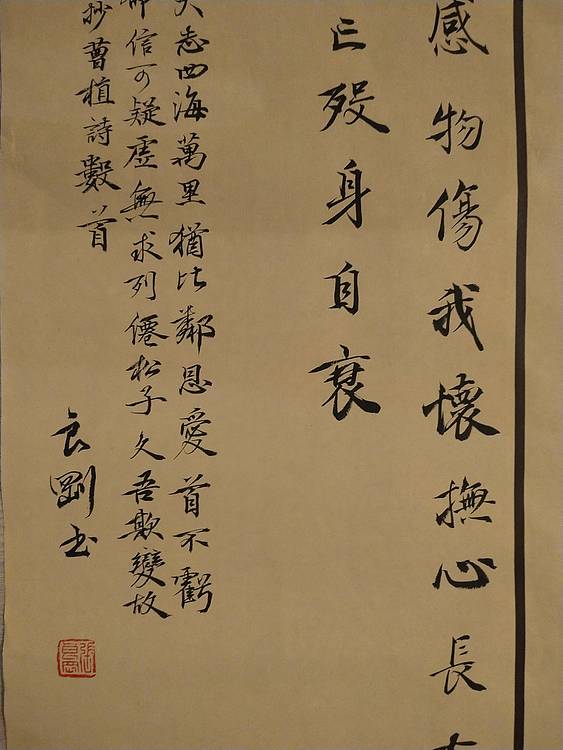 感物傷我懷撫心長
亡歿身自衰
夫志四海萬里猶比鄰恩愛苟不虧
命信可疑虛無求列僊松子久吾欺變故
抄曹植詩數首
良剛书